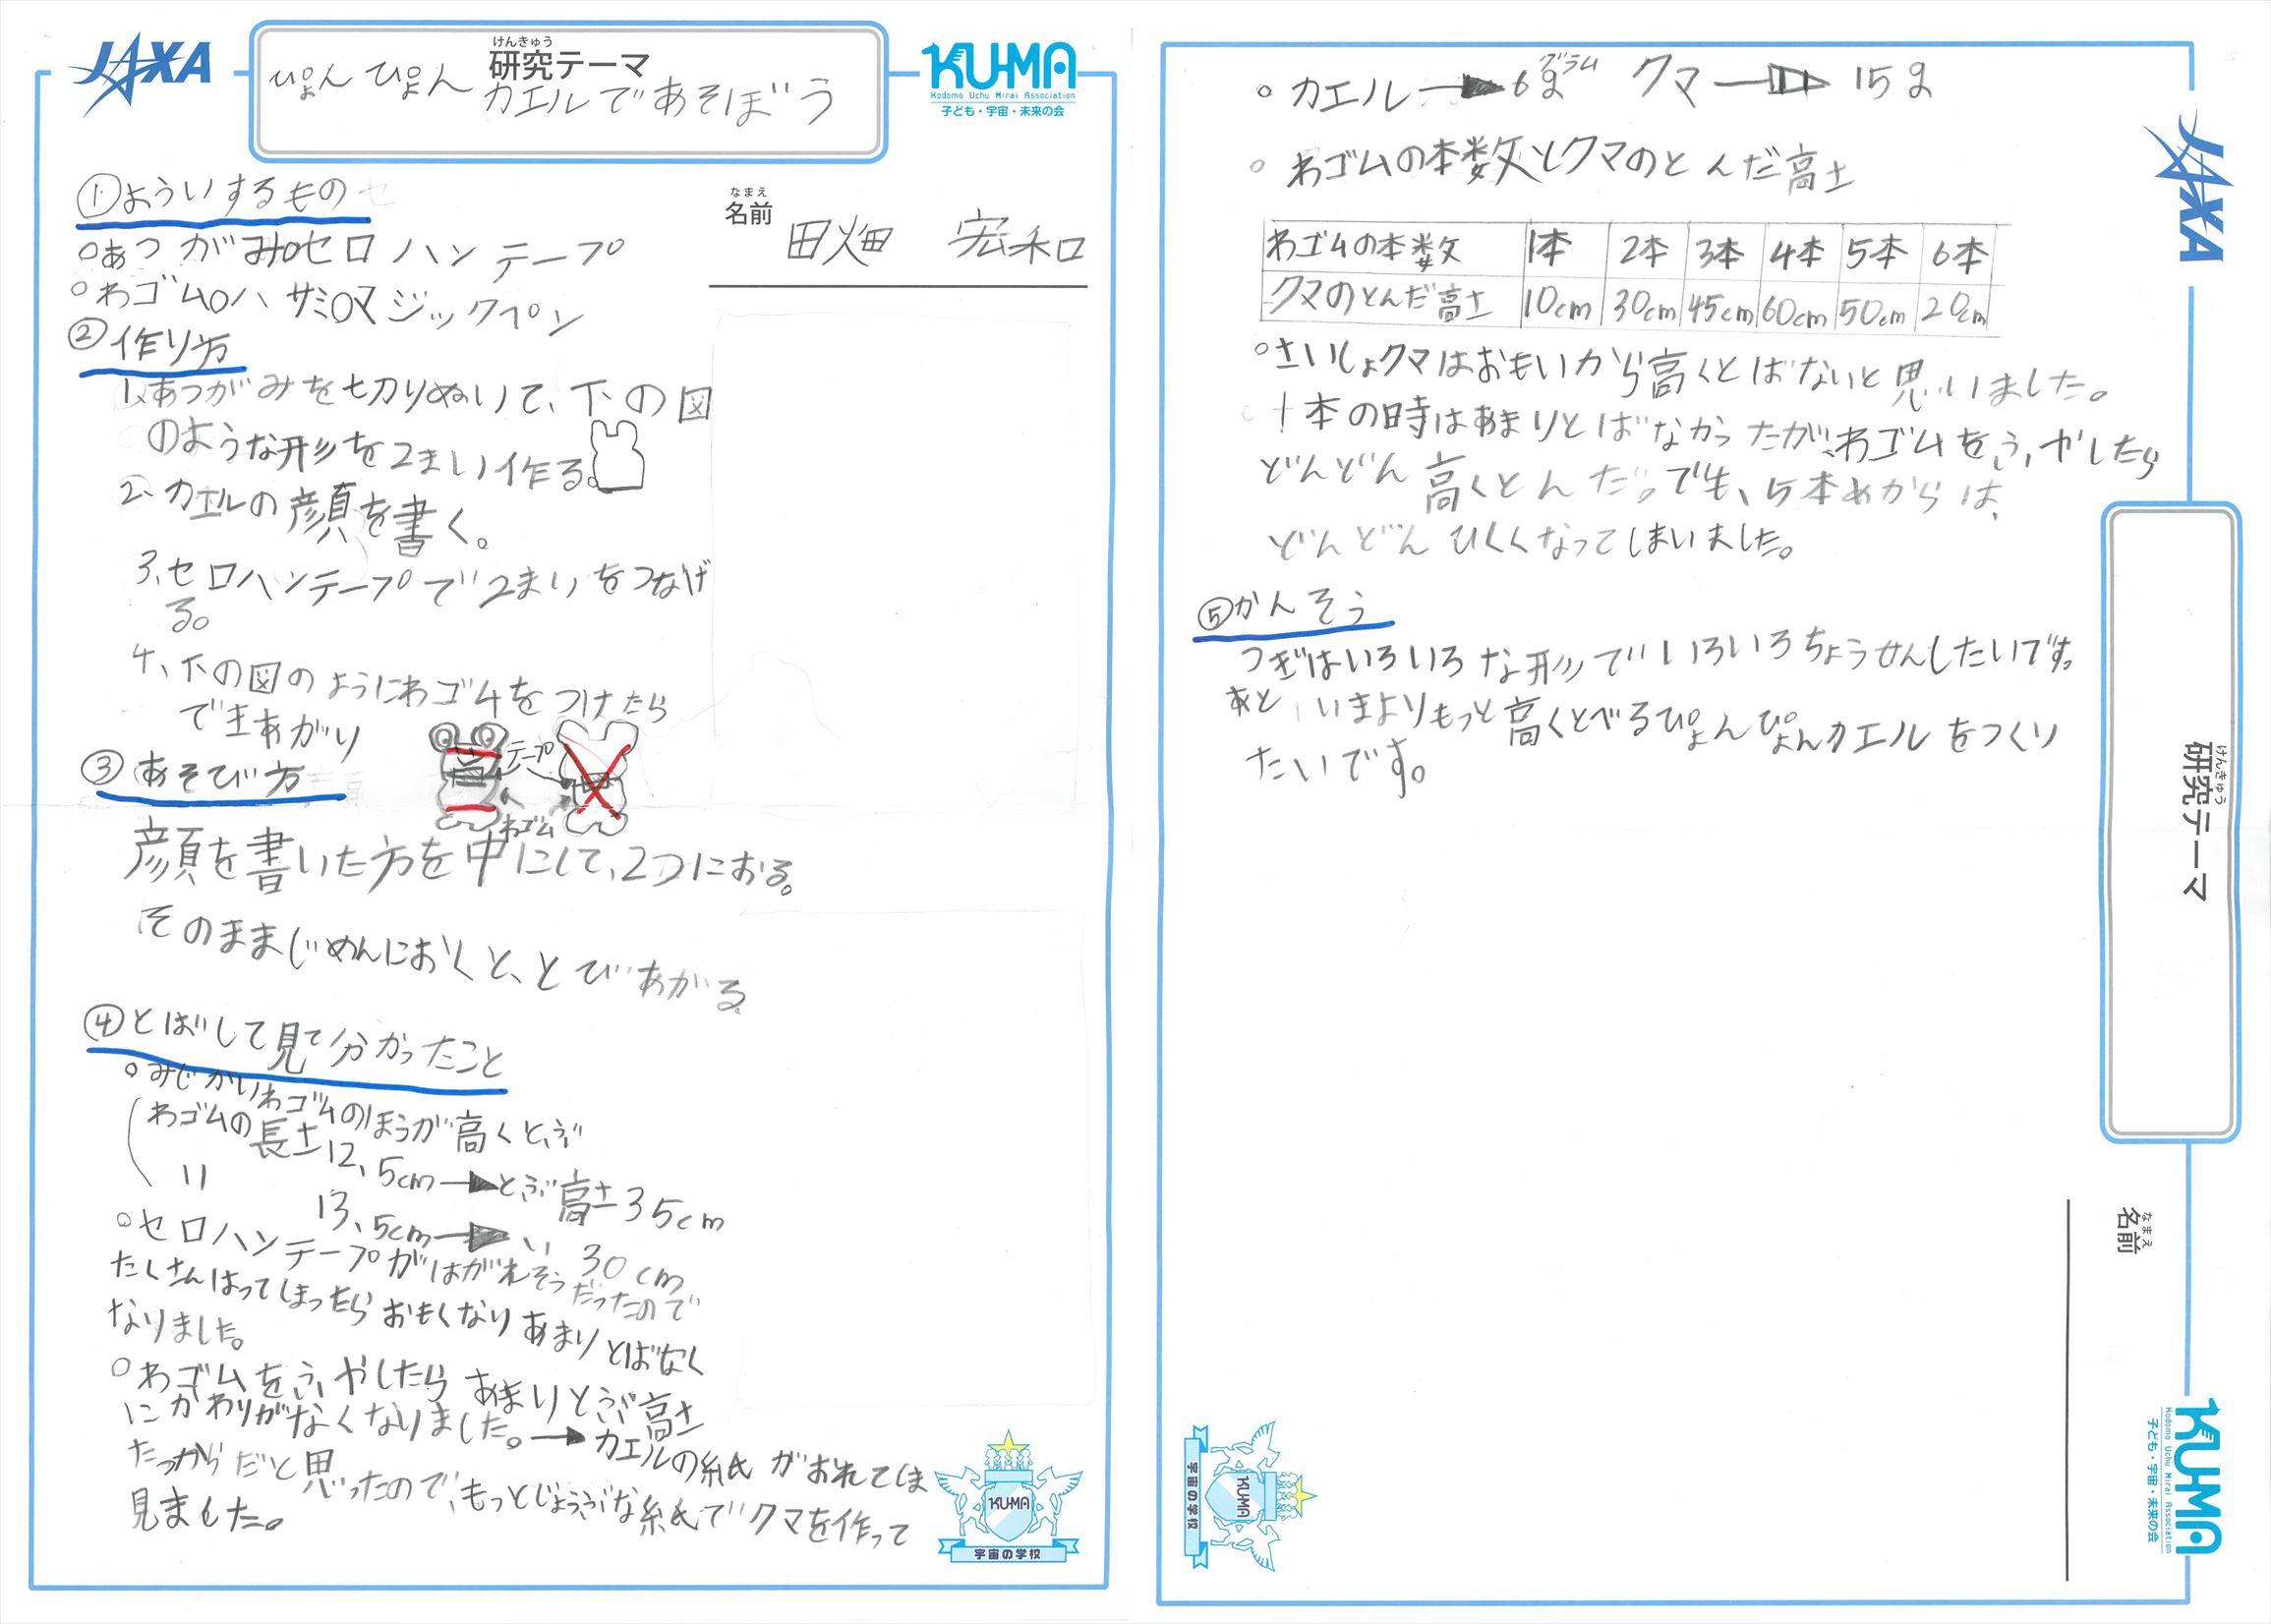 JAXA
けんきゅう
研究テーマ
ぴょんぴょん
カエルであそぼう
KU-MA
Kodomo Uchu Mirai Association
子ども・宇宙・未来の会
なまえ
名前
田畑 宏和
①よういするもの
○あつがみ○セロハンテープ
○わゴム○ハサミ○マジックペン
②作り方
1、あつがみを切りぬいて、下の図
のような形を2まい作る。
2、カエルの顔を書く。
3、セロハンテープで2まいをつなげ
る。
4、下の図のようにわゴムをつけたら
できあがり
テープ
わゴム
③あそび方
顔を書いた方を中にして、2つにおる。
そのままじめんにおくと、とびあがる。
④とばして見て分かったこと
○みじかいわゴムのほうが高くとぶ
わゴムの長さ12、5cm→とぶ高さ35cm
〃 13、5cm→〃 30cm
○セロハンテープがはがれそうだったので
たくさんはってしまったらおもくなりあまりとばなく
なりました。
○わゴムをふやしたらあまりとぶ高さ
にかわりがなくなりました。→カエルの紙がおれてしま
たっからだと思ったので、もっとじょうぶな紙でクマを作って
見ました。
KU-MA
宇宙の学校
○カエル→6g グラム クマ→15g
○わゴムの本数とクマのとんだ高さ
わゴムの本数 1本 2本 3本 4本 5本 6本
クマのとんだ高さ 10cm 30cm 45cm 60cm 50cm 20cm
○さいしょクマはおもいから高くとばないと思いました。
1本の時はあまりとばなかったが、わゴムをふやしたら
どんどん高くとんだ。でも、5本めからは、
どんどんひくくなってしまいました。
⑤かんそう
つぎはいろいろな形でいろいろちょうせんしたいです。
あと いまよりもっと高くとべるぴょんぴょんカエルをつくり
たいです。
JAXA
けんきゅう
研究テーマ
なまえ
名前
KU-MA
Kodomo Uchu Mirai Association
子ども・宇宙・未来の会
KU-MA
宇宙の学校